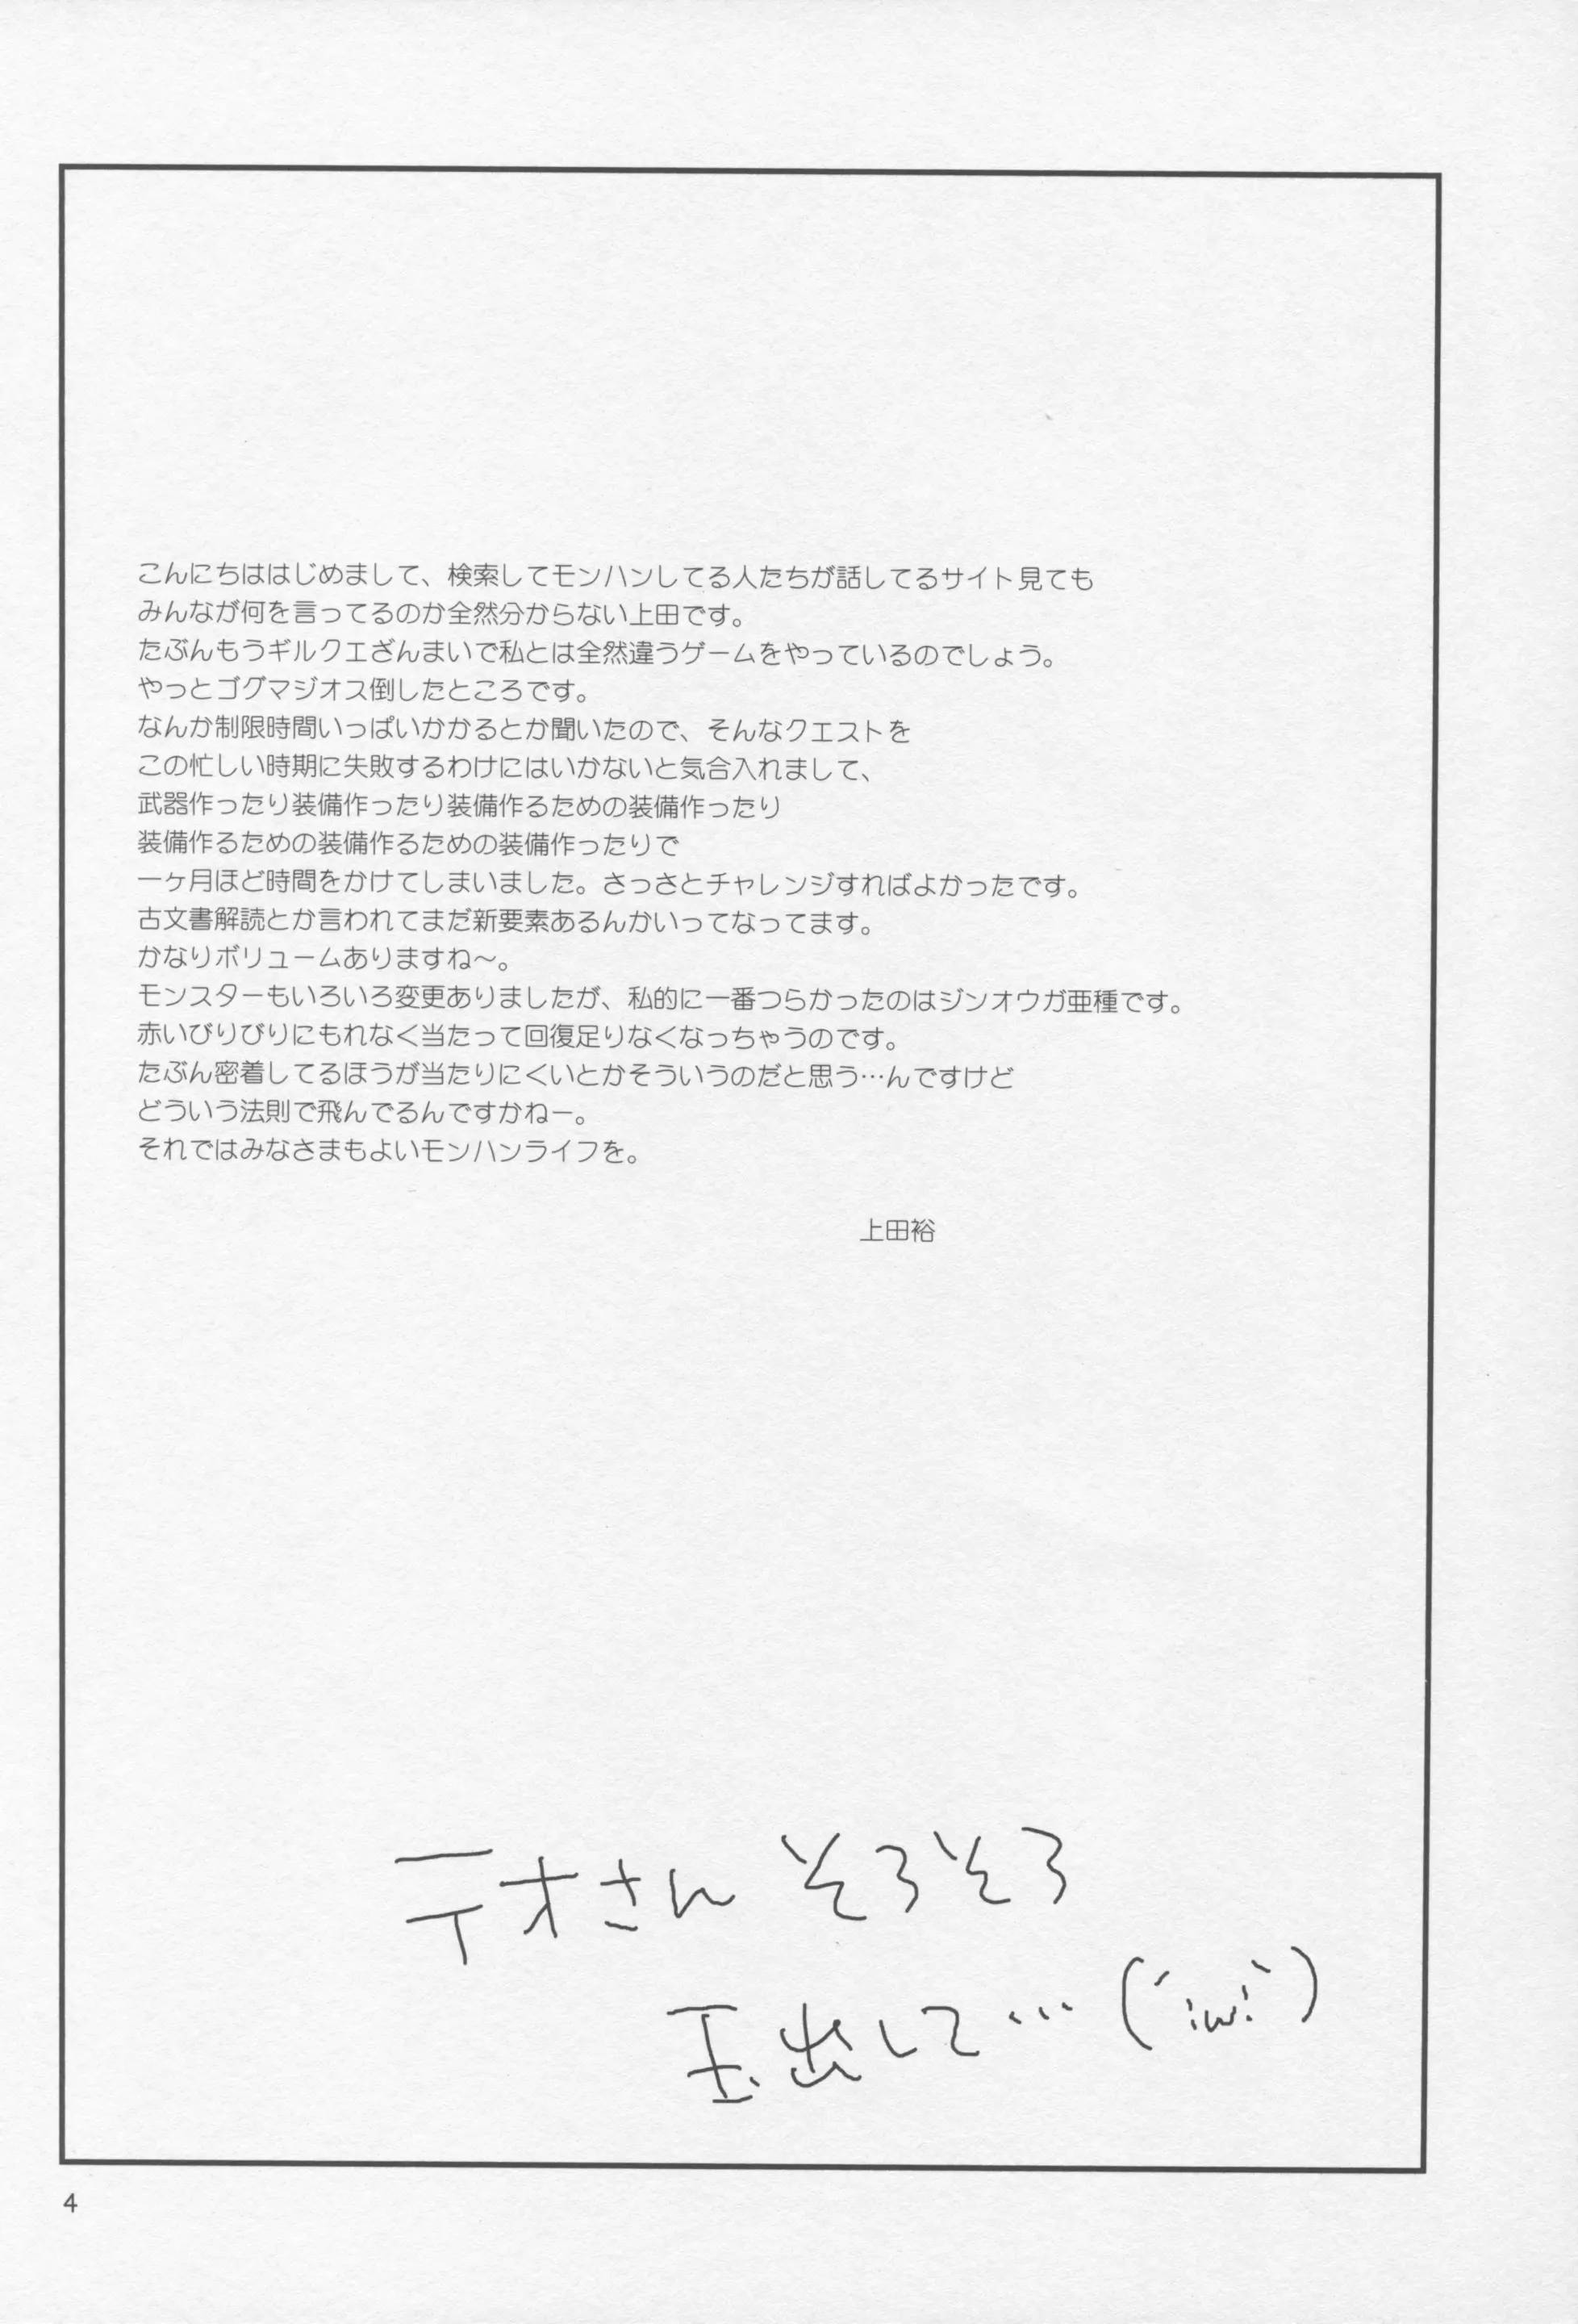 こんにちははじめまして、検索してモンハンしてる人たちが話してるサイト見ても
みんなが何を言ってるのか全然分からない上田です。
たぶんもうギルクエざんまいで私とは全然違うゲームをやっているのでしょう。
やっとゴグマジオス倒したところです。
なんか制限時間いっぱいかかるとか聞いたので、そんなクエストを
この忙しい時期に失敗するわけにはいかないと気合入れまして、
武器作ったり装備作ったり装備作るための装備作ったり
装備作るための装備作るための装備作ったりで
一ヶ月ほど時間をかけてしまいました。さっさとチャレンジすればよかったです。
古文書解読とか言われてまだ新要素あるんかいってなってます。
かなりボリュームありますね～。
モンスターもいろいろ変更ありましたが、私的に一番つらかったのはジンオウガ亜種です。
赤いびりびりにもれなく当たって回復足りなくなっちゃうのです。
たぶん密着してるほうが当たりにくいとかそういうのだと思う…んですけど
どういう法則で飛んでるんですかねー。
それではみなさまもよいモンハンライフを。
上田裕
テオさん そろそろ
玉出して…(´;ω;｀)
4